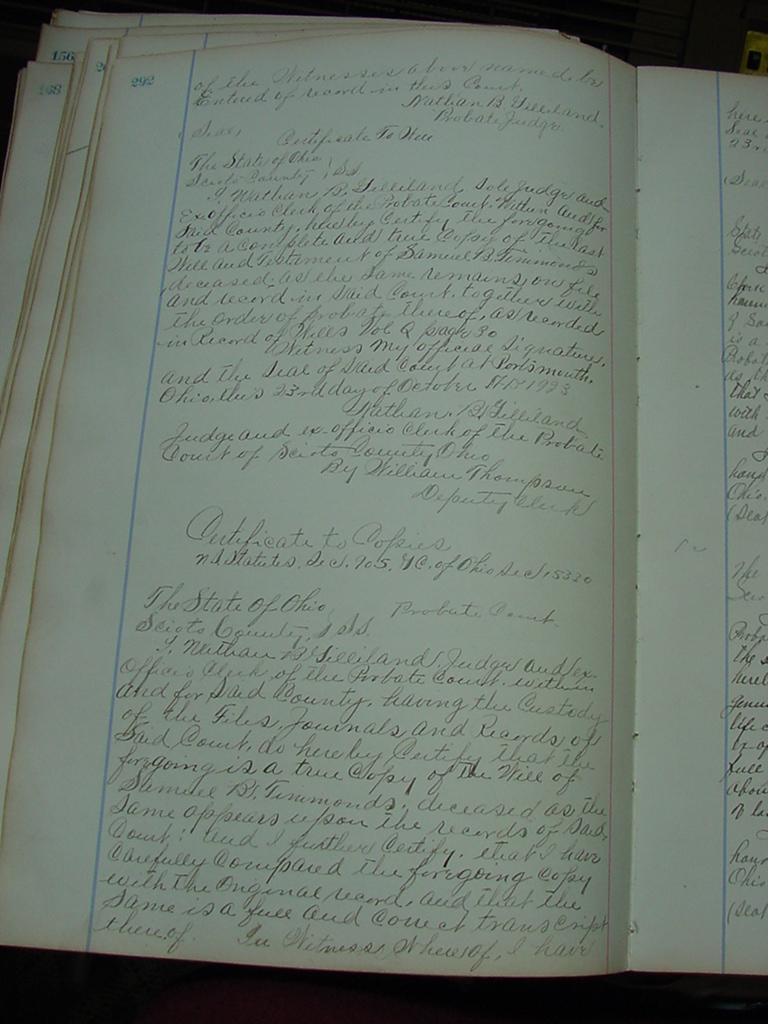 156
168
292
of the Witnesses above named be
Entered of record in this Court.
Nathan B. Gilliland.
Probate Judge.
(Seal)
Certificate To Will
The State of Ohio
Scioto County, SS.
I, Nathan B. Gilliland, Sole Judge and
Ex Officio Clerk of the Probate Court, within and for
Said County, hereby Certify the foregoing
to be a complete and true Copy of the last
Will and Testament of Samuel B. Timmonds
deceased, as the same remains on file
and record in said Court, together with
the order of probate thereof, as recorded
in Record of Wills Vol Q page 30
Witness my official signature,
and the Seal of Said Court at Portsmouth,
Ohio, this 23rd day of October A.D. 1923
Nathan. B. Gilliland
Judge and ex-officio Clerk of the Probate
Court of Scioto County Ohio
By William Thompson
Deputy Clerk
Certificate to Copies
Statutes. Sec. 905. G.C. of Ohio Sec
The State of Ohio,
Probate Court.
Scioto County, SS.
I, Nathan B. Gilliland, Judge and ex-
Officio Clerk of the Probate Court. within
and for Said County, having the Custody
of the Files, Journals and Records of
Said Court, do hereby Certify that the
foregoing is a true Copy of the Will of
Samuel B. Timmonds, deceased as the
Same appears upon the records of said
Court; and I further Certify. that I have
Carefully Compared the foregoing Copy
with the Original record, and that the
Same is a full and Correct transcript
thereof. In Witness Whereof, I have
here
Seal
23r
(Seal
State
Sciot
Clerk
is a
Probat
as th
that
with
and
hand
Ohio.
(Seal
The
Scio
Proba
the s
full
abou
of la
han
Ohio
(Seal